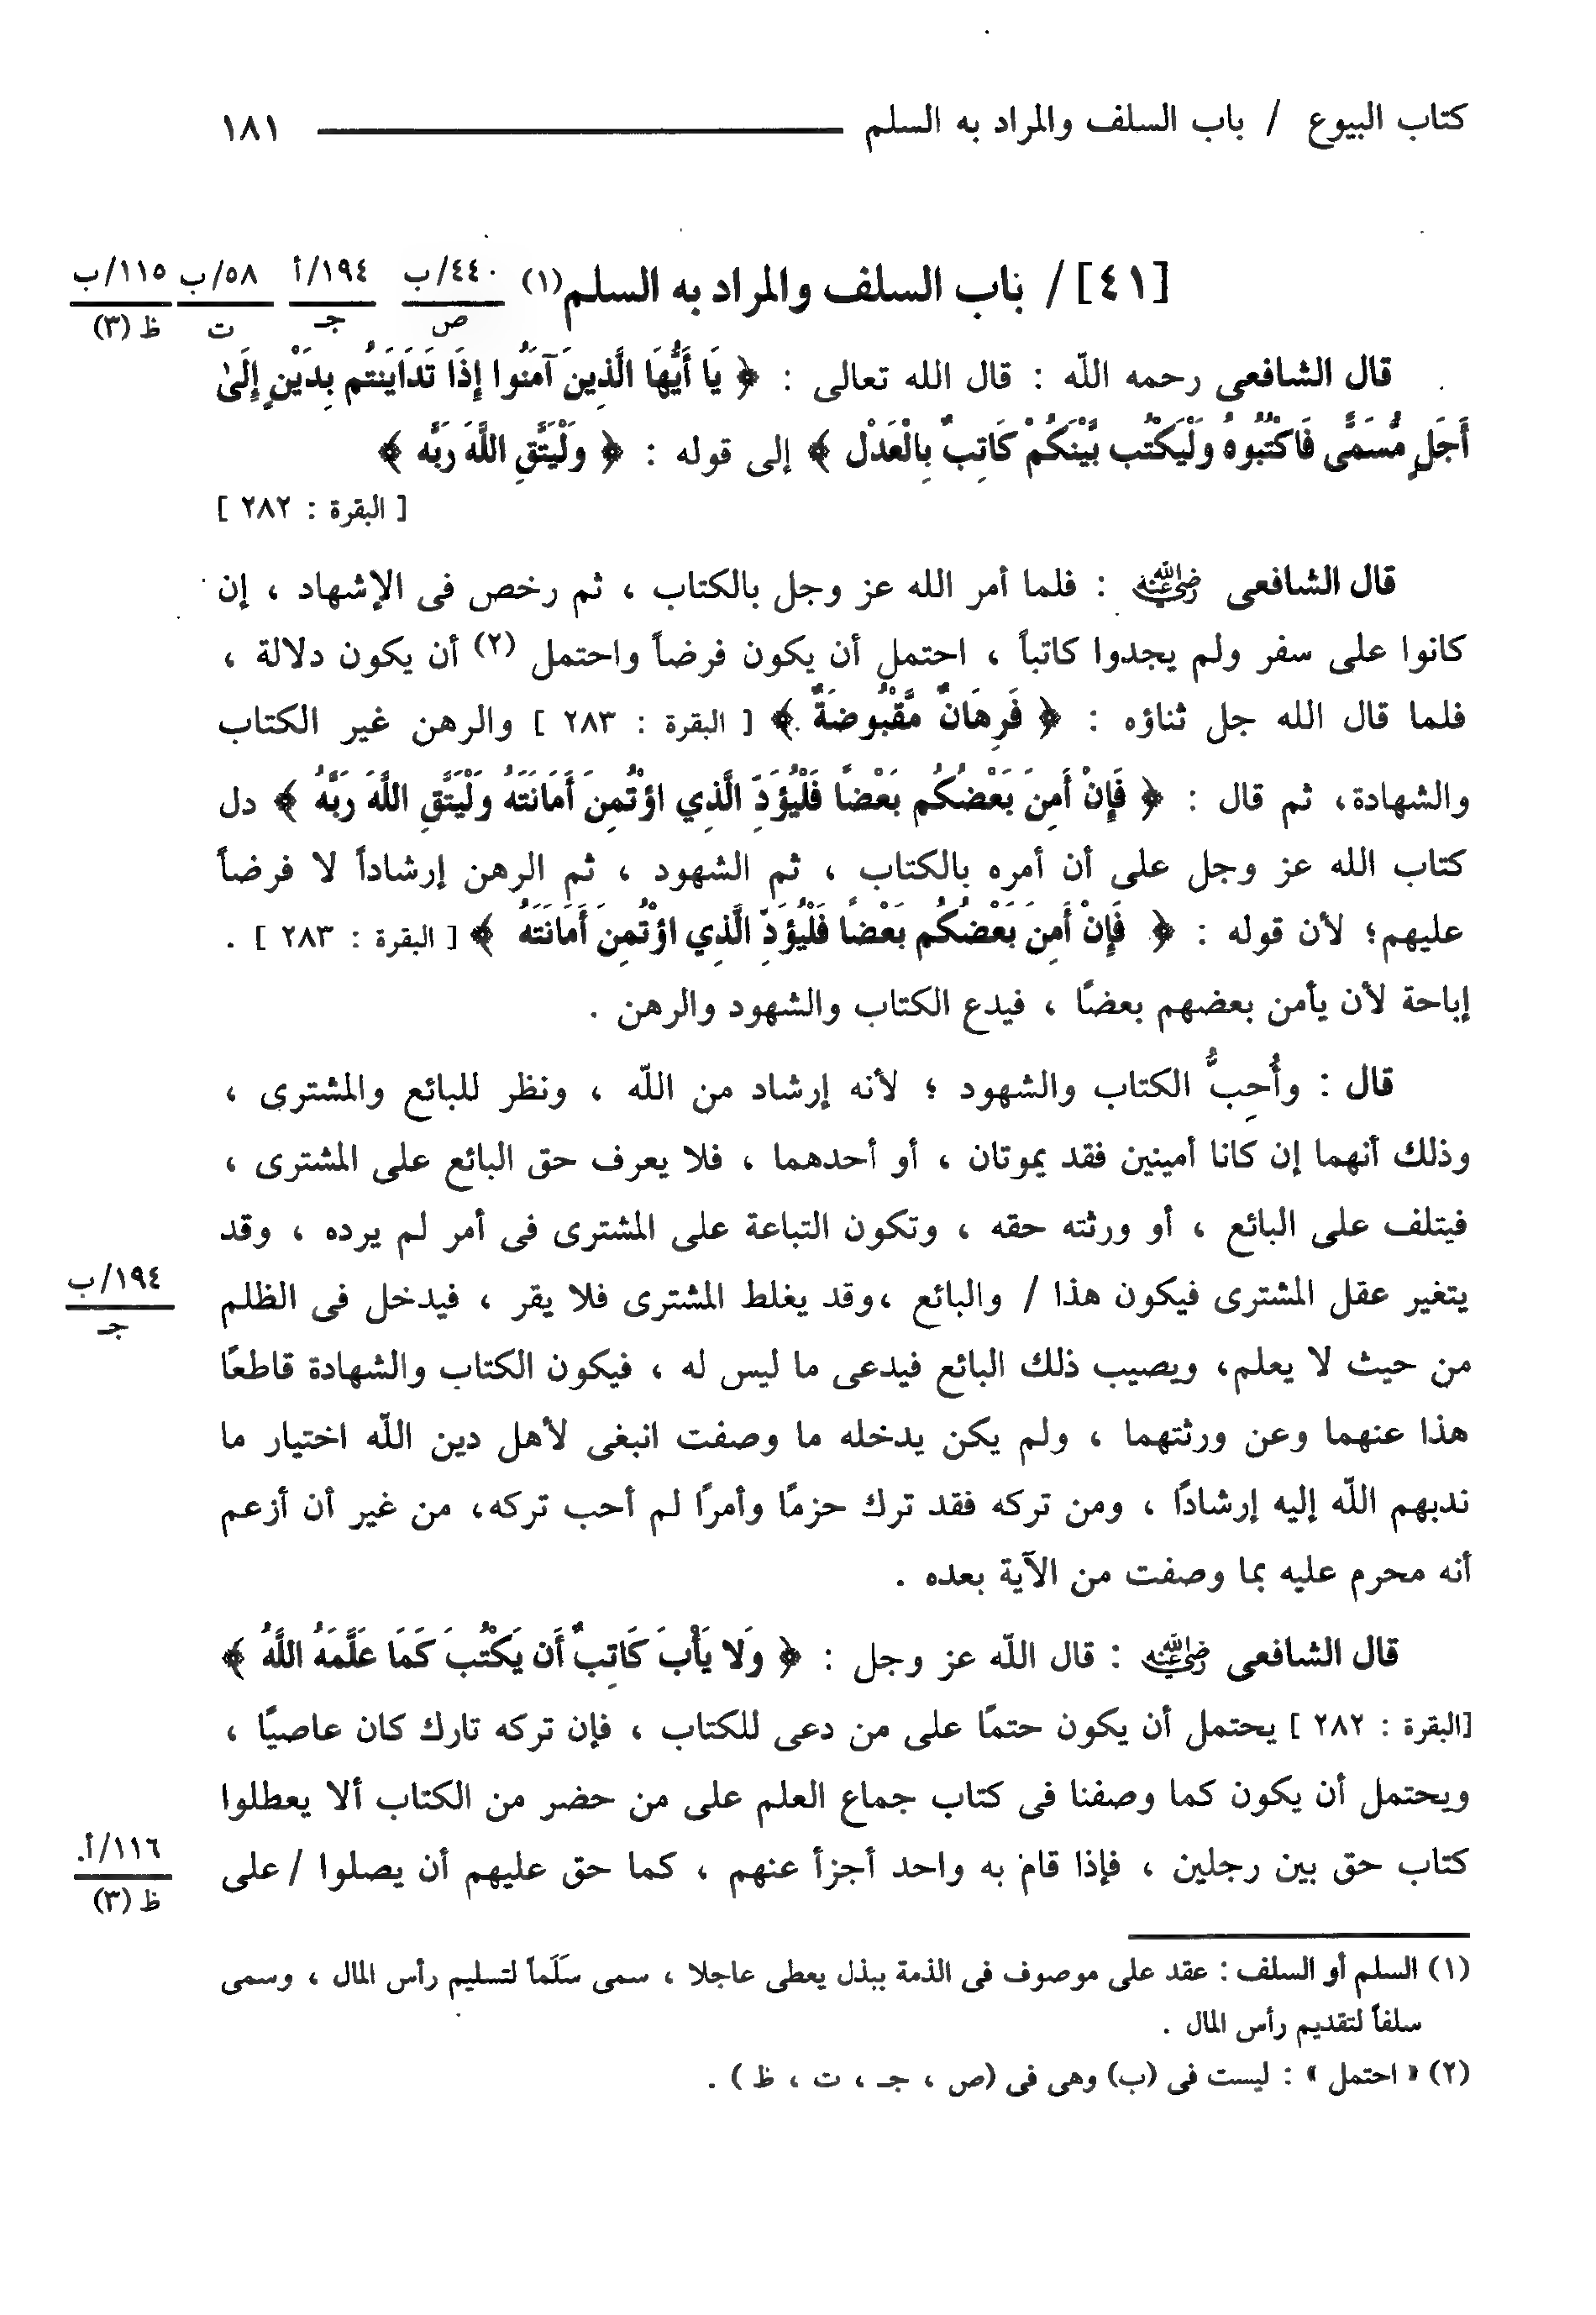 كتاب البيوع / باب السلف والمراد به السلم ١٨١
[٤١] / باب السلف والمراد به السلم(١)
٤٤٠/ب
ص
١٩٤/أ
جـ
٥٨/ب
ت
١١٥/ب
ظ (٣)
قال الشافعى رحمه اللّه : قال الله تعالى : ﴿ يَا أَيُّهَا الَّذِينَ آمَنُوا إِذَا تَدَايَنتُم بِدَيْنٍ إِلَىٰ
أَجَلٍ مُّسَمًّى فَاكْتُبُوهُ وَلْيَكْتُب بَّيْنَكُمْ كَاتِبٌ بِالْعَدْلِ ﴾ إلى قوله : ﴿ وَلْيَتَّقِ اللَّهَ رَبَّه ﴾
[ البقرة : ٢٨٢ ]
قال الشافعى رضي الله عنه : فلما أمر الله عز وجل بالكتاب ، ثم رخص فى الإشهاد ، إن
كانوا على سفر ولم يجدوا كاتباً ، احتمل أن يكون فرضاً واحتمل (٢) أن يكون دلالة ،
فلما قال الله جل ثناؤه : ﴿ فَرِهَانٌ مَّقْبُوضَةٌ ﴾ [ البقرة : ٢٨٣ ] والرهن غير الكتاب
والشهادة، ثم قال : ﴿ فَإِنْ أَمِنَ بَعْضُكُم بَعْضًا فَلْيُؤَدِّ الَّذِي اؤْتُمِنَ أَمَانَتَهُ وَلْيَتَّقِ اللَّهَ رَبَّهُ ﴾ دل
كتاب الله عز وجل على أن أمره بالكتاب ، ثم الشهود ، ثم الرهن إرشاداً لا فرضاً
عليهم؛ لأن قوله : ﴿ فَإِنْ أَمِنَ بَعْضُكُم بَعْضًا فَلْيُؤَدِّ الَّذِي اؤْتُمِنَ أَمَانَتَهُ ﴾ [ البقرة : ٢٨٣ ] .
إباحة لأن يأمن بعضهم بعضًا ، فيدع الكتاب والشهود والرهن .
قال : وأُحِبُّ الكتاب والشهود ؛ لأنه إرشاد من اللّه ، ونظر للبائع والمشترى ،
وذلك أنهما إن كانا أمينين فقد يموتان ، أو أحدهما ، فلا يعرف حق البائع على المشترى ،
فيتلف على البائع ، أو ورثته حقه ، وتكون التباعة على المشترى فى أمر لم يرده ، وقد
يتغير عقل المشترى فيكون هذا / والبائع ،وقد يغلط المشترى فلا يقر ، فيدخل فى الظلم
١٩٤/ب
جـ
من حيث لا يعلم، ويصيب ذلك البائع فيدعى ما ليس له ، فيكون الكتاب والشهادة قاطعًا
هذا عنهما وعن ورثتهما ، ولم يكن يدخله ما وصفت انبغى لأهل دين اللّه اختيار ما
ندبهم اللّه إليه إرشادًا ، ومن تركه فقد ترك حزمًا وأمرًا لم أحب تركه، من غير أن أزعم
أنه محرم عليه بما وصفت من الآية بعده .
قال الشافعى رضي الله عنه : قال اللّه عز وجل : ﴿ وَلا يَأْبَ كَاتِبٌ أَن يَكْتُبَ كَمَا عَلَّمَهُ اللَّهُ ﴾
[البقرة : ٢٨٢ ] يحتمل أن يكون حتمًا على من دعى للكتاب ، فإن تركه تارك كان عاصيًا ،
ويحتمل أن يكون كما وصفنا فى كتاب جماع العلم على من حضر من الكتاب ألا يعطلوا
كتاب حق بين رجلين ، فإذا قام به واحد أجزأ عنهم ، كما حق عليهم أن يصلوا / على
١١٦/أ
ظ (٣)
(١) السلم أو السلف : عقد على موصوف فى الذمة ببذل يعطى عاجلا ، سمى سَلَماً لتسليم رأس المال ، وسمى
سلفاً لتقديم رأس المال .
(٢) « احتمل » : ليست فى (ب) وهى فى (ص ، جـ ، ت ، ظ ) .